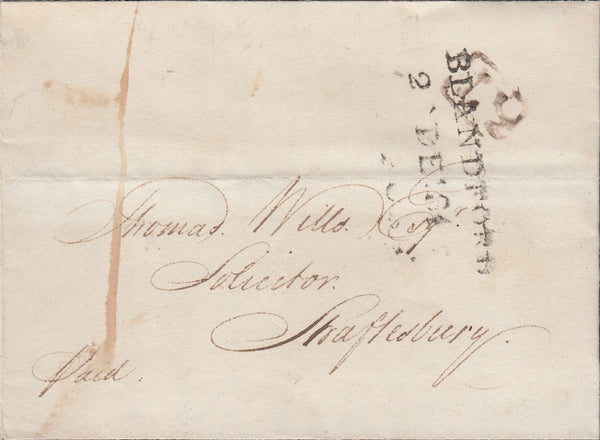 BLANDFORD
2 DE
Thomas Wills Esqr.
Solicitor.
Shaftesbury.
Paid.